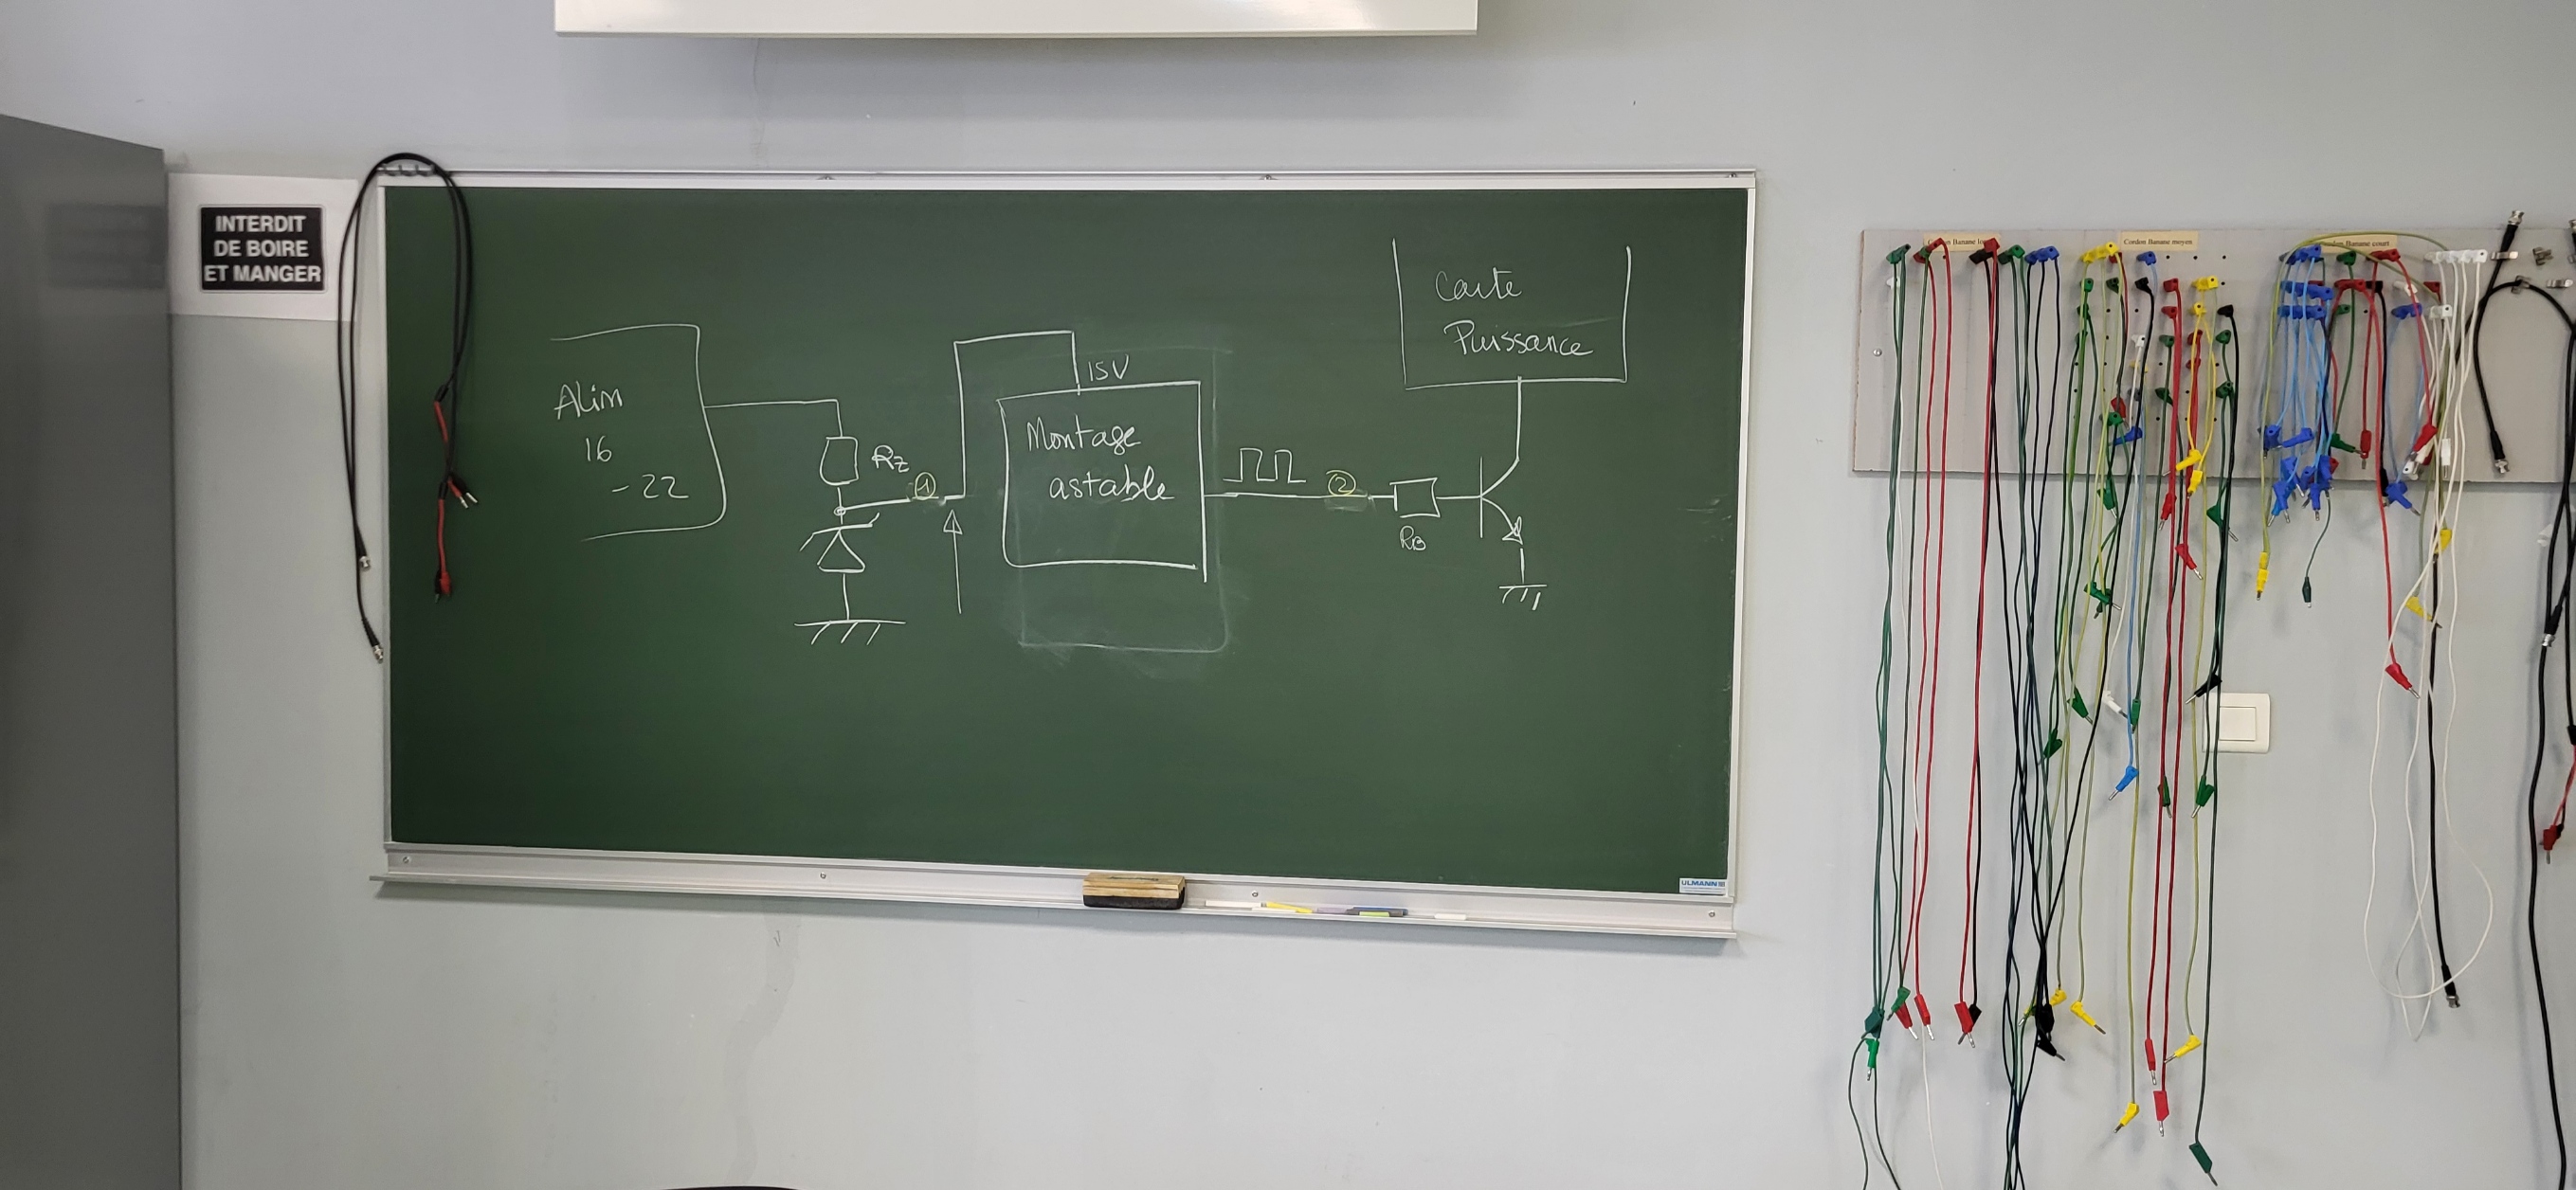 INTERDIT
DE BOIRE
ET MANGER
Alim
16
-22
Rz
1
15V
Montage
astable
2
RB
Carte
Puissance
Cordon Banane moyen
Cordon Banane court
ULMANN